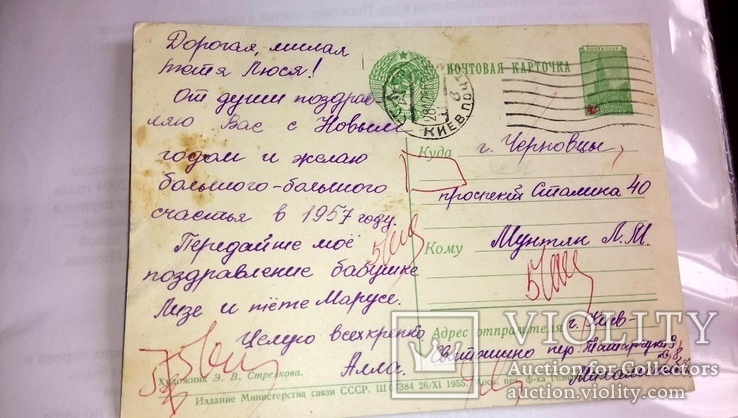 Дорогая, милая
тётя Люся!
От души поздрав-
ляю Вас с Новым
годом и желаю
большого-большого
счастья в 1957 году.
Передайте моё
поздравление бабушке
Лизе и тёте Марусе.
Целую всех крепко
Алла.
Художник Э. В. Стрелкова.
ПОЧТОВАЯ КАРТОЧКА
ПОЧТА СССР
КИЕВ
Куда г. Черновцы,
проспект Сталина 40
Кому Мунтян Л. М.
Адрес отправителя г. Киев
Святошино пер.
Издание Министерства связи СССР. Ш 07384 26/XI 1955.
VIOLITY
Auction for Collectors
auction.violity.com